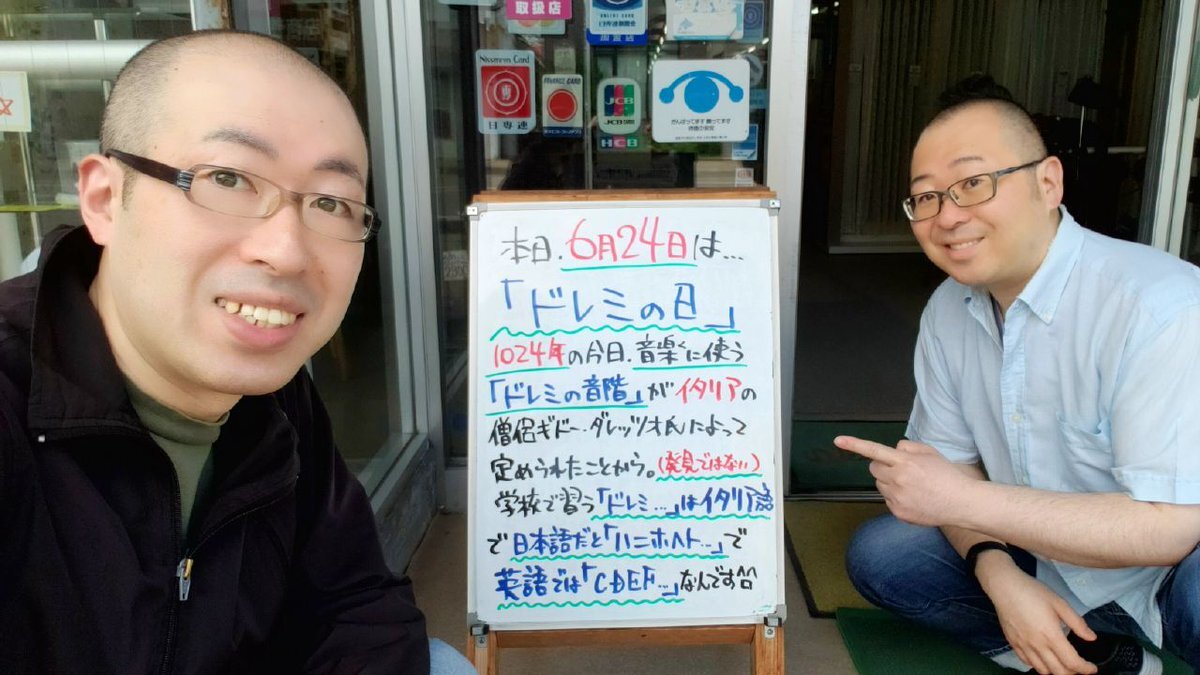 取扱店
Nissenren Card
日専連
FINANCE CARD
JCB
HCB
本日、6月24日は…
「ドレミの日」
1024年の今日、音楽に使う
「ドレミの音階」がイタリアの
僧侶ギドー・ダレッツオ氏によって
定められたことから。(発見ではない)
学校で習う「ドレミ…」はイタリア語
で日本語だと「ハニホヘト…」で
英語では「CDEF…」なんです